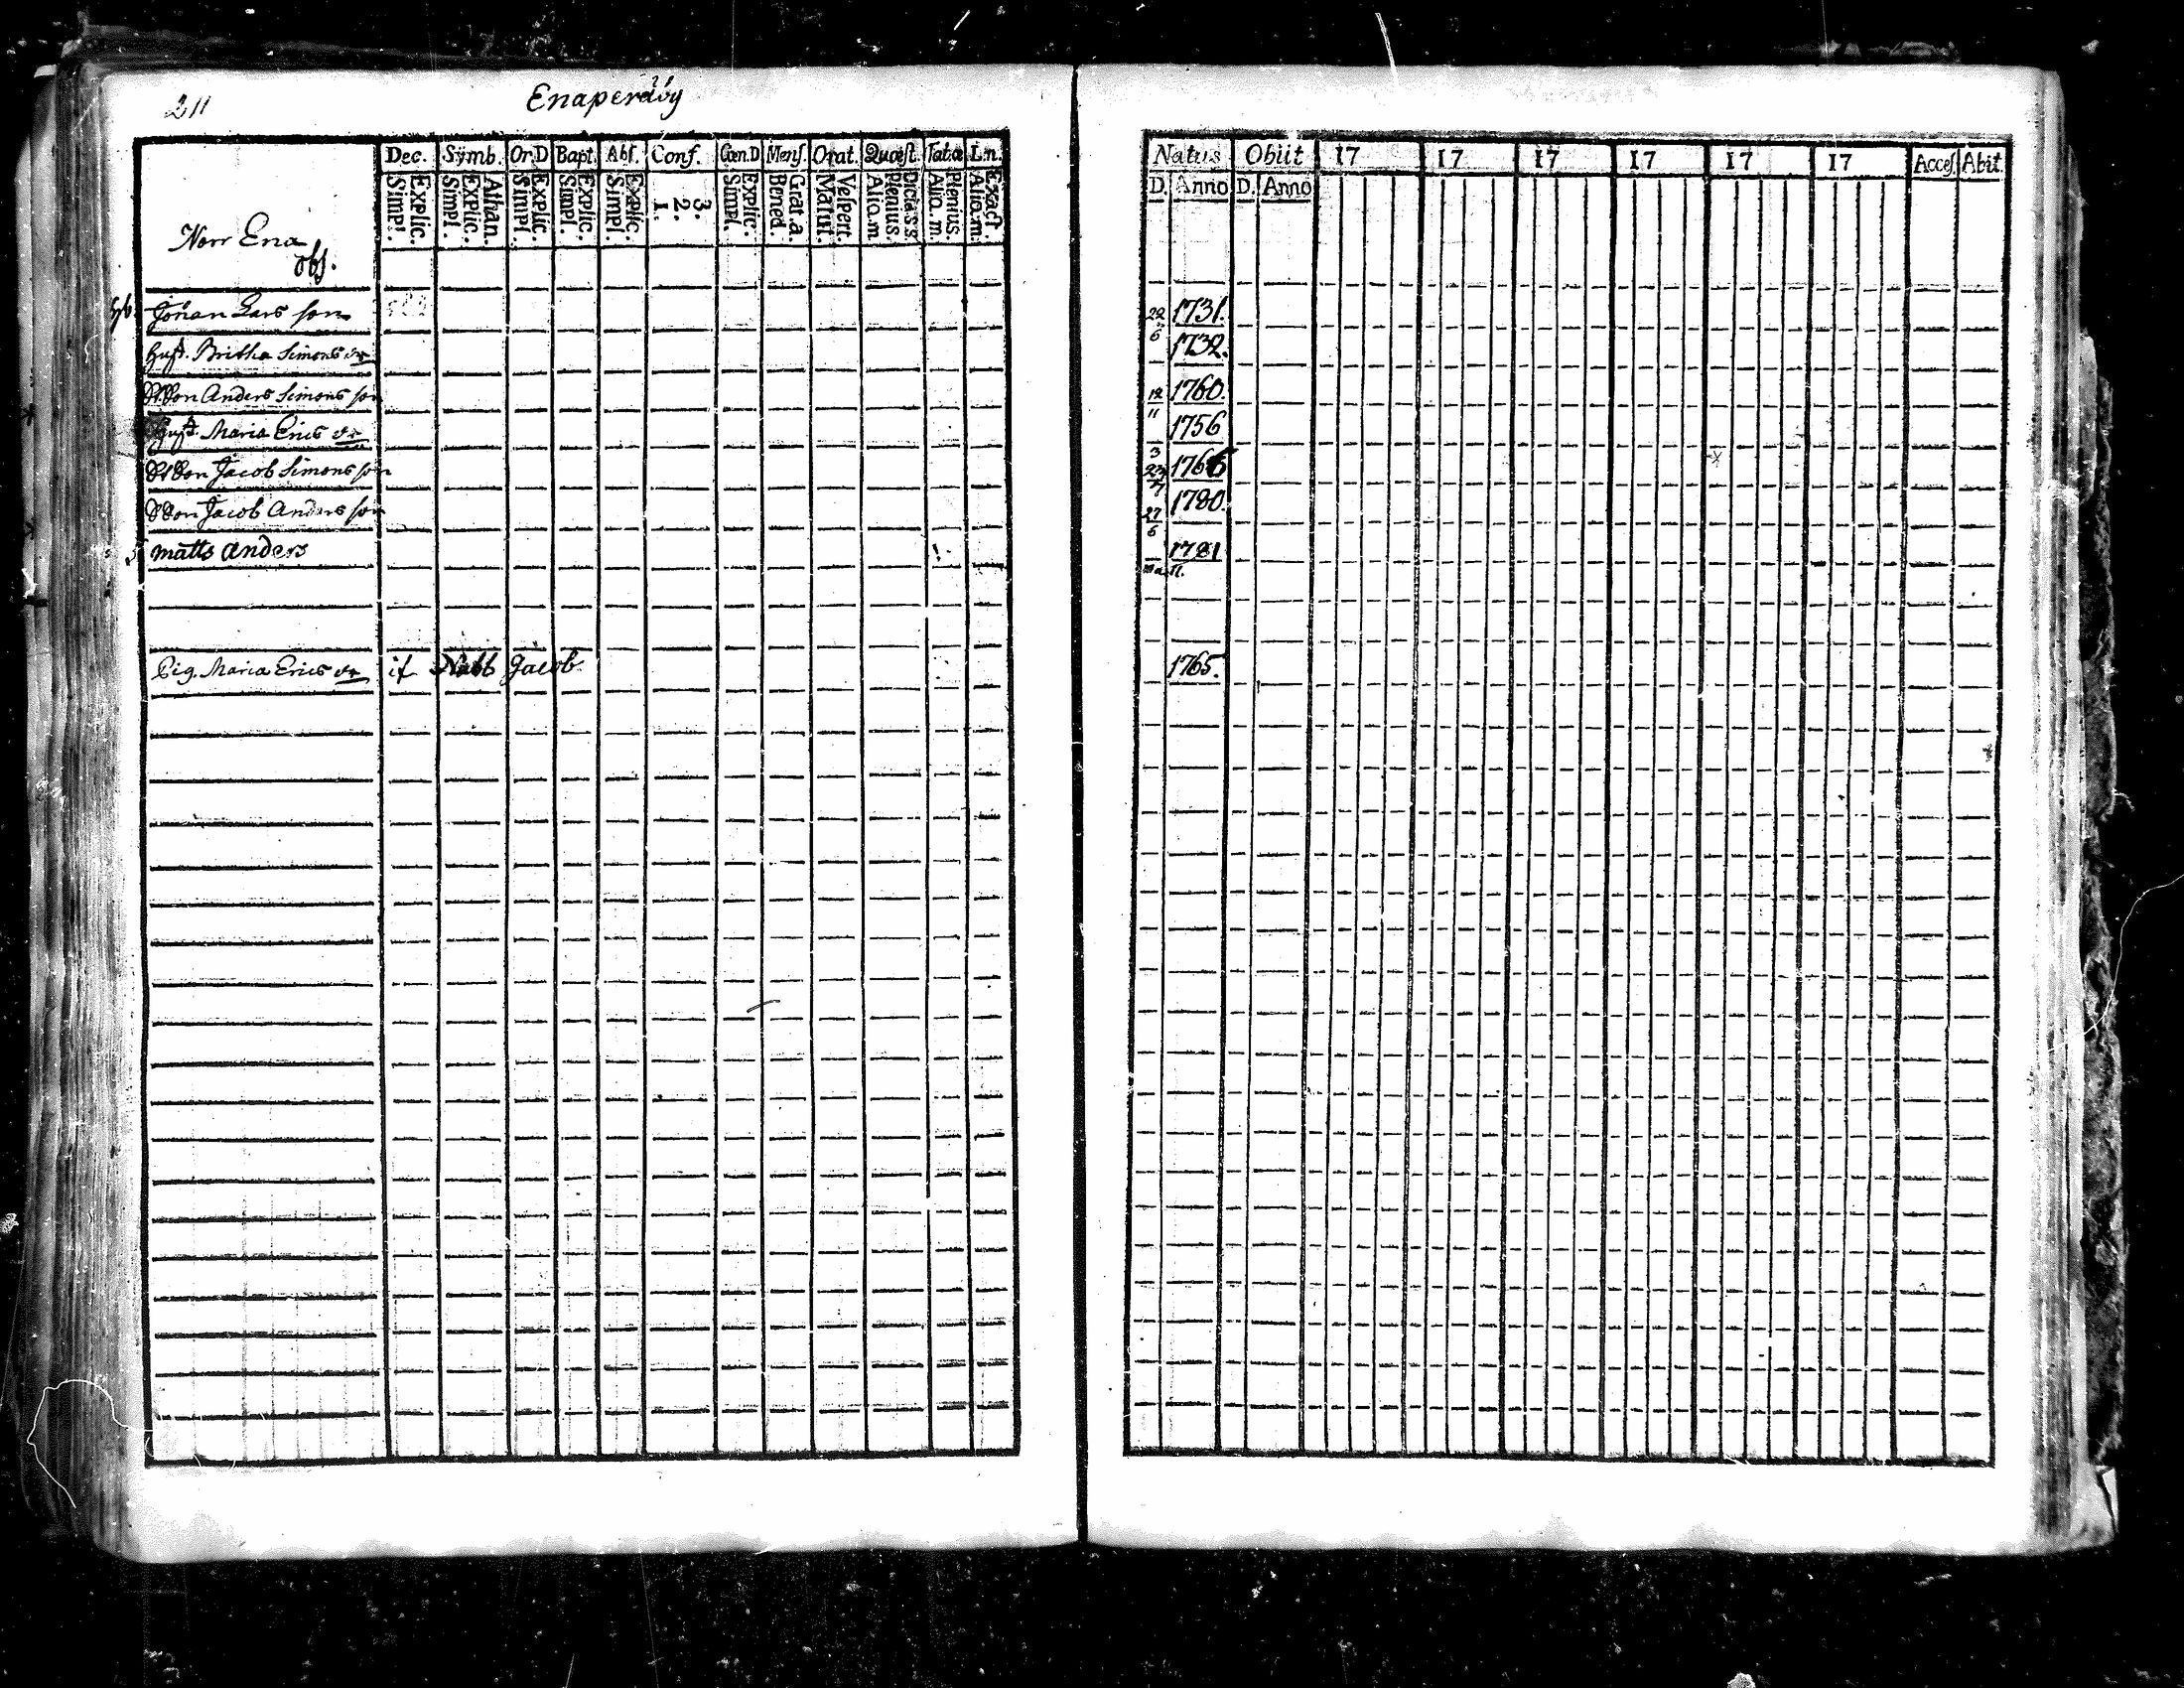 211
Enaperäby
Dec. Symb. Or.D Bapt. Abs. Conf. Cœn.D Mens. Orat. Quæst. Tab.œ L.n.
Simpl. Explic. Simpl. Explic. Athan. Simpl. Explic. Simpl. Explic. Simpl. Explic. 1. 2. 3. Simpl. Explic. Bened. Grat.a. Matut. Vespert. Aliq.m Plenius. Dicta.s.s. Aliq.m. Plenius. Aliq.m Exact.
Norr Ena
obs.
Johan Lars son
Hust. Britha Simons dr
St.Son Anders Simons son
Hust. Maria Erics dr
St.Son Jacob Simons son
S.Son Jacob Anders son
Matts Anders
Pig. Maria Erics dr if Nabb Jacob
Natus Obiit 17 17 17 17 17 17 Acces. Abit.
D. Anno D. Anno
22/6 1731.
1732.
12/11 1760.
1756
3
23/7 1766
27/6 1780.
1781
1765.